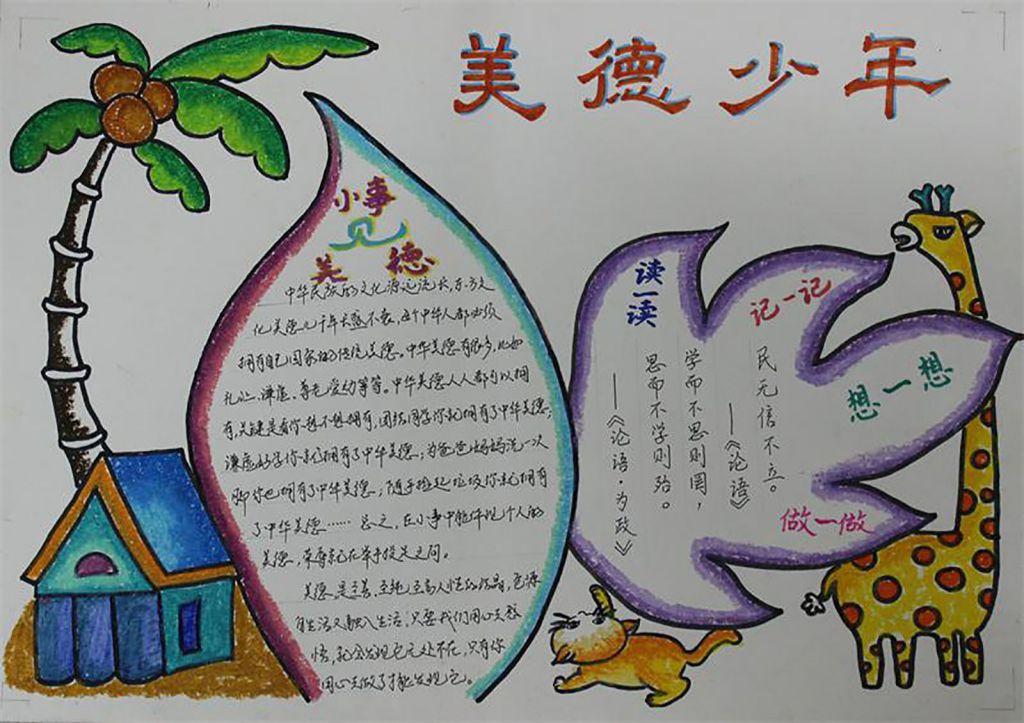 美德少年
小事
见
美德
中华民族的文化源远流长,东方文
化美德几千年长盛不衰,每个中华人都必须
拥有自己国家的传统美德。中华美德有很多,比如
礼让、谦虚、尊老爱幼等等。中华美德人人都可以拥
有,关键是看你想不想拥有,团结同学你就拥有了中华美德;
谦虚好学你就拥有了中华美德;为爸爸妈妈洗一次
脚你也拥有了中华美德;随手捡起垃圾你就拥有
了中华美德……总之,在小事中能体现个人的
美德,荣辱就在举手投足之间。
美德,是至善、至纯、至高人性的结晶,它源
自生活又融入生活,只要我们用心去感
悟,就会发现它无处不在,只有你
用心去做了才能发现它。
读一读
学而不思则罔,
思而不学则殆。
——《论语·为政》
记一记
民无信不立。
——《论语》
想一想
做一做